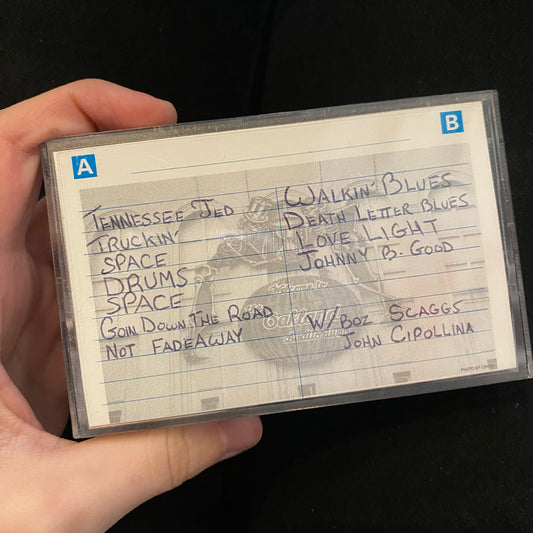 A
B
TENNESSEE JED
TRUCKIN'
SPACE
DRUMS
SPACE
GOIN DOWN THE ROAD
NOT FADEAWAY
WALKIN' BLUES
DEATH LETTER BLUES
LOVE LIGHT
JOHNNY B. GOOD
W/ BOZ SCAGGS
JOHN CIPOLLINA
Welcome to
Oakland
PHOTO BY